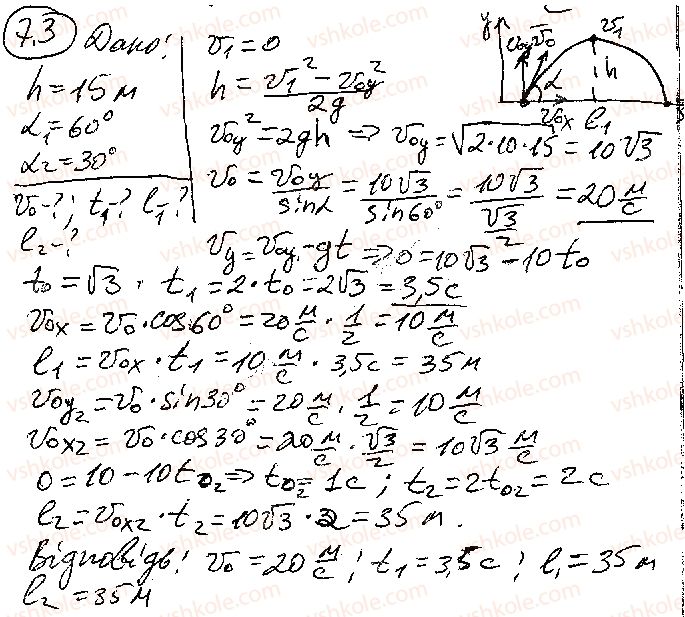 7.3 Дано:
h = 15 м
α₁ = 60°
α₂ = 30°
v₀-?; t₁-? l₁-?
l₂-?
v₁ = 0
h = (v₁² - v₀y²)/2g
v₀y² = 2gh => v₀y = √(2·10·15) = 10√3
v₀ = v₀y/sinα = 10√3/sin60° = 10√3/(√3/2) = 20 м/с
vy = v₀y - gt => 0 = 10√3 - 10t₀
t₀ = √3, t₁ = 2·t₀ = 2√3 = 3,5 с
v₀x = v₀·cos60° = 20 м/с · 1/2 = 10 м/с
l₁ = v₀x · t₁ = 10 м/с · 3,5 с = 35 м
v₀y₂ = v₀·sin30° = 20 м/с · 1/2 = 10 м/с
v₀x₂ = v₀·cos30° = 20 м/с · √3/2 = 10√3 м/с
0 = 10 - 10t₀₂ => t₀₂ = 1 с; t₂ = 2t₀₂ = 2 с
l₂ = v₀x₂ · t₂ = 10√3 · 2 = 35 м.
Відповідь: v₀ = 20 м/с; t₁ = 3,5 с; l₁ = 35 м
l₂ = 35 м
y v₀y v₀ v₁
α h
v₀x l₁
vshkole.com